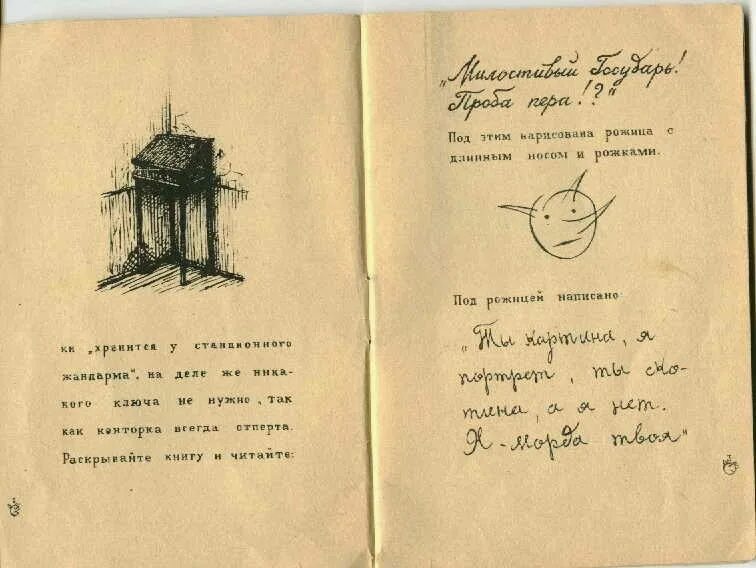 ки „хренится у станционного
жандарма“, на деле же ника-
кого ключа не нужно, так
как конторка всегда отперта.
Раскрывайте книгу и читайте:
„Милостивый Государь!
Проба пера!?“
Под этим нарисована рожица с
длинным носом и рожками.
Под рожицей написано:
„Ты картина, я
портрет, ты ско-
тина, а я нет.
Я - морда твоя“